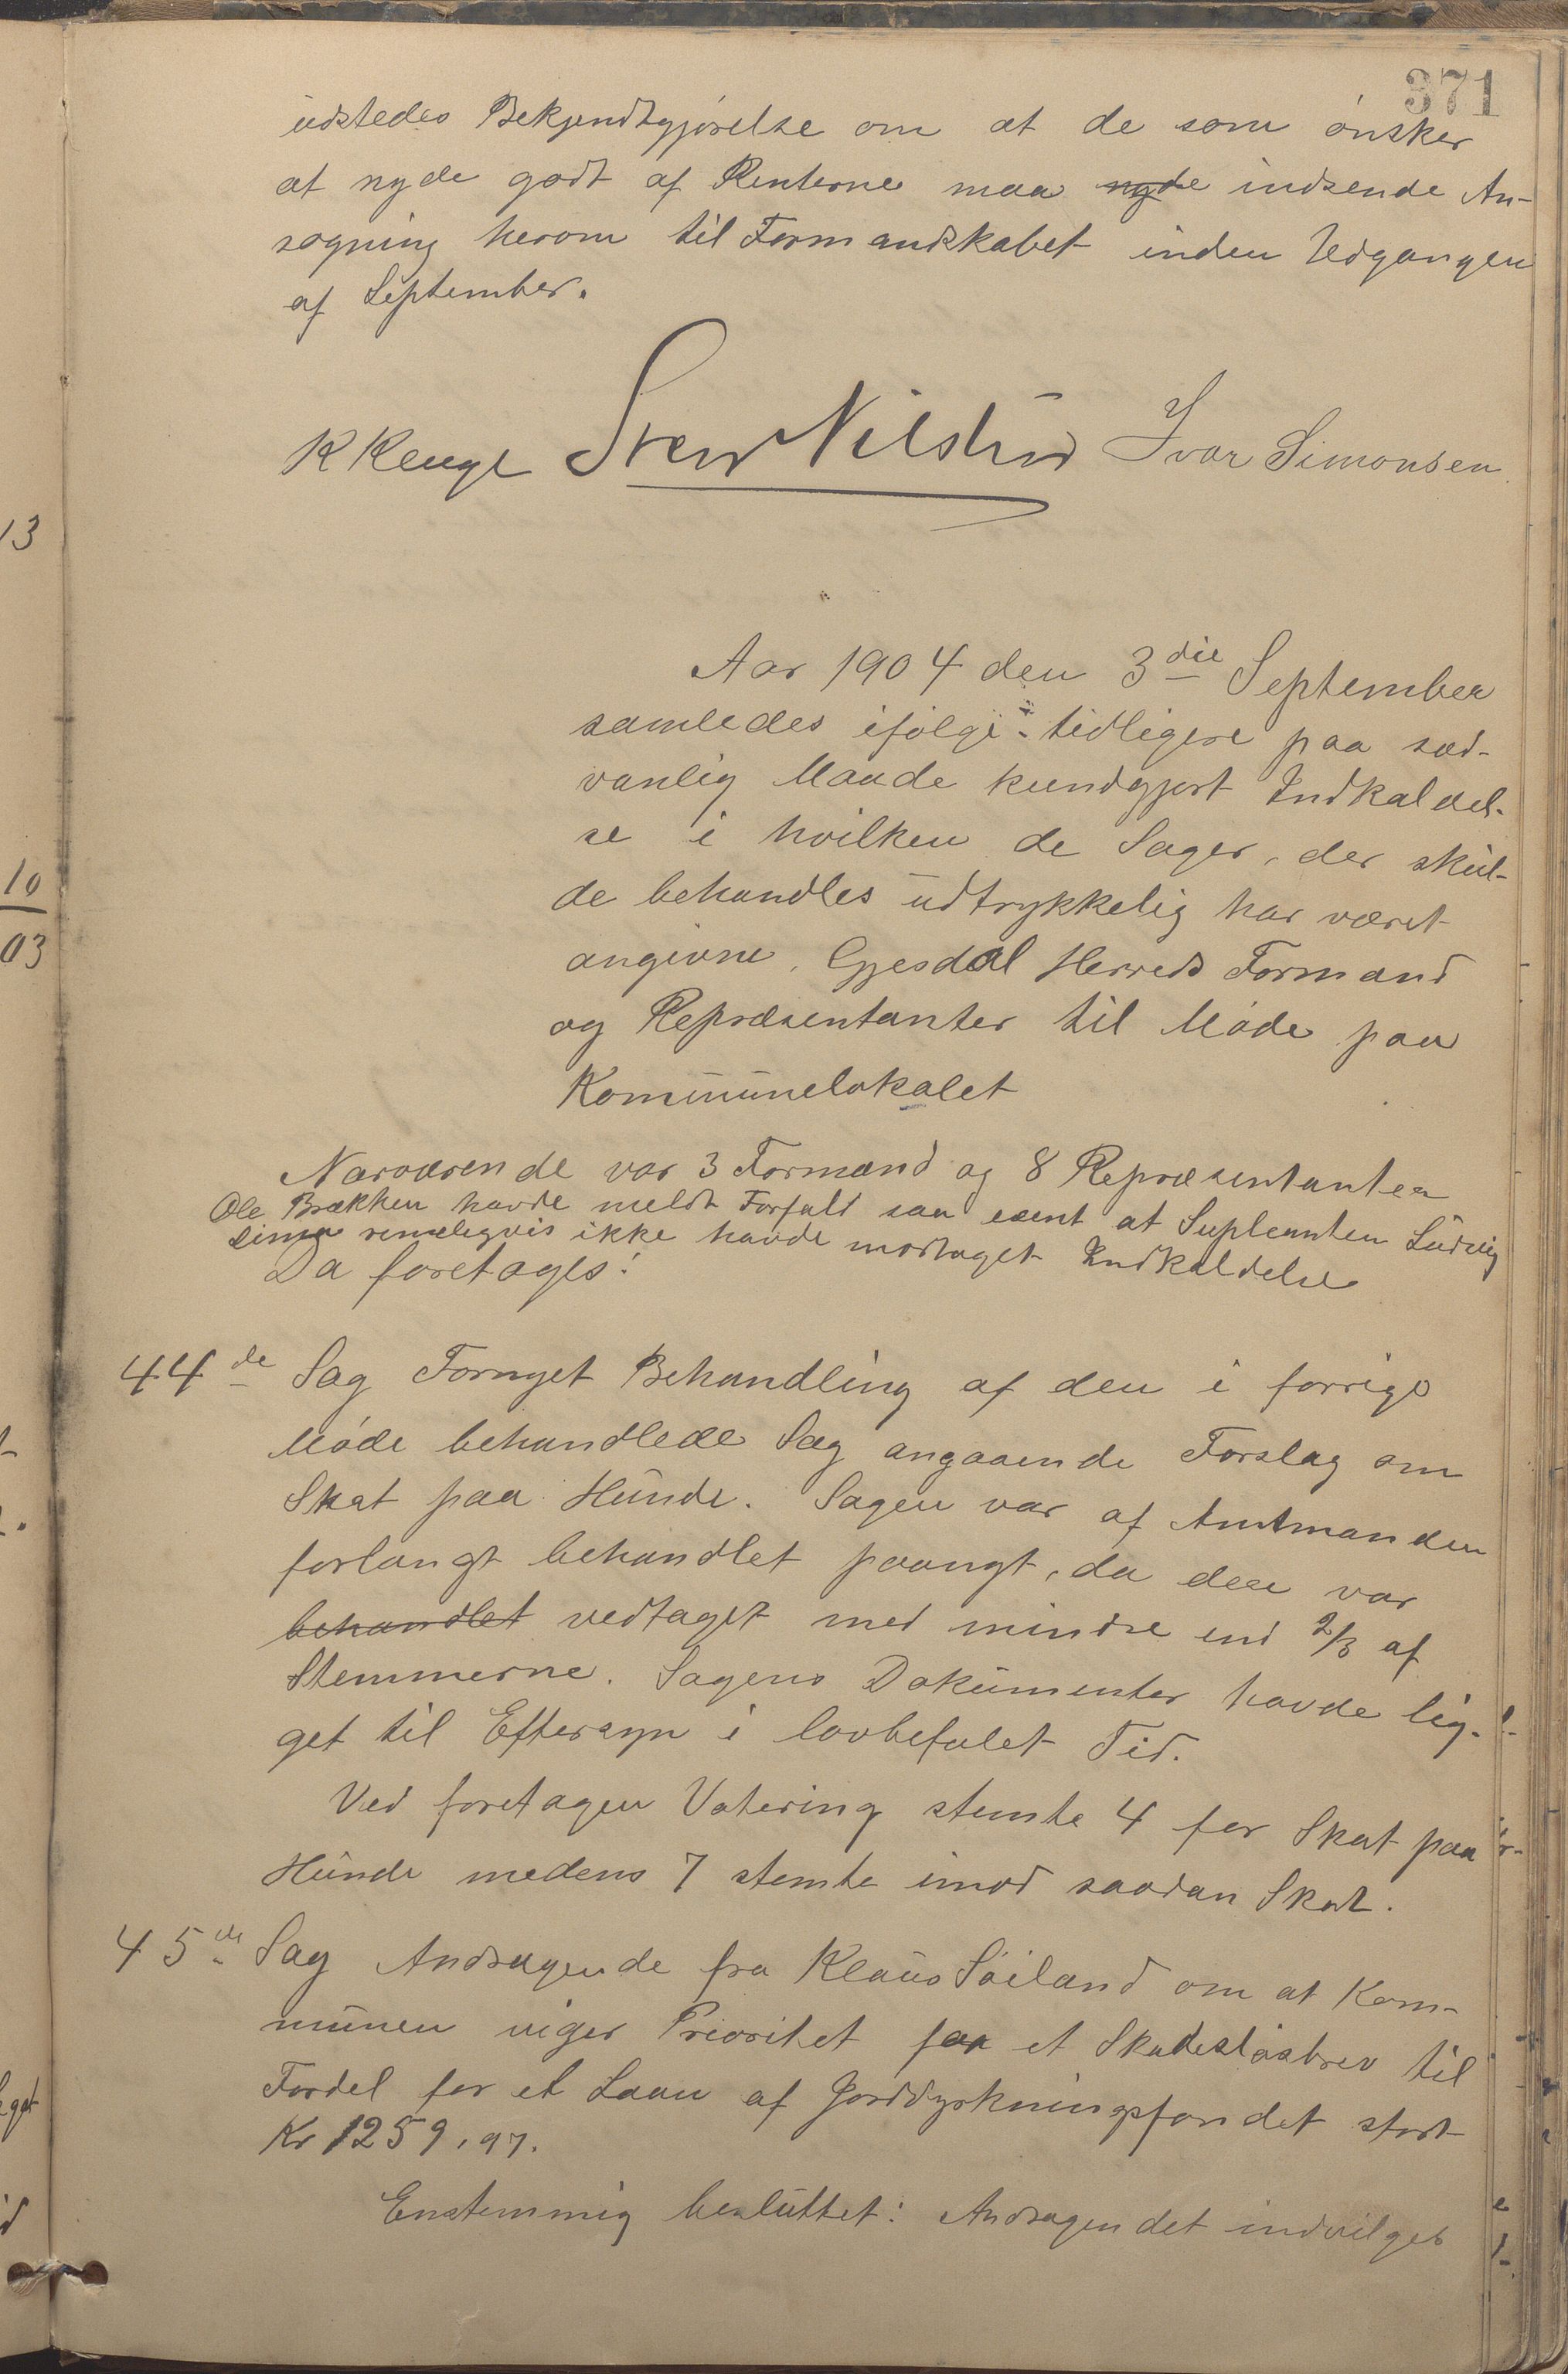 371
udstedes Bekjendtgjørelse om at de som ønsker
at nyde godt af Renterne maa nyde indsende An-
søgning herom til Formandskabet inden Udgangen
af September.
K Kenge Sven Nilsen Ivar Simonsen
Aar 1904 den 3die September
samledes ifølge tidligere paa sæd-
vanlig Maade kundgjort Indkaldel-
se i hvilken de Sager, der skul-
de behandles udtrykkelig har været
angivne, Gjesdal Herreds Formænd
og Repræsentanter til Møde paa
Kommunelokalet
Nærværende var 3 Formænd og 8 Repræsentanter
Ole Brækken havde meldt Forfald saa sent at Supleanten Ludvig
Sima rimeligvis ikke havde modtaget Indkaldelse
Da foretages:
44de Sag Fornyet Behandling af den i forrige
Møde behandlede Sag angaaende Forslag om
Skat paa Hunde. Sagen var af Amtmanden
forlangt behandlet paanyt, da den var
behandlet vedtaget med mindre end 2/3 af
Stemmerne. Sagens Dokumenter havde lig-
get til Eftersyn i lovbefalet Tid.
Ved foretagen Votering stemte 4 for Skat paa
Hunde medens 7 stemte imod saadan Skat.
45de Sag Andragende fra Klaus Søiland om at Kom-
munen viger Prioritet for et Skadesløsbrev til
Fordel for et Laan af Jorddyrkningsfondet stort
Kr 1259,97.
Enstemmig besluttet: Andragendet indvilges
13
10
03